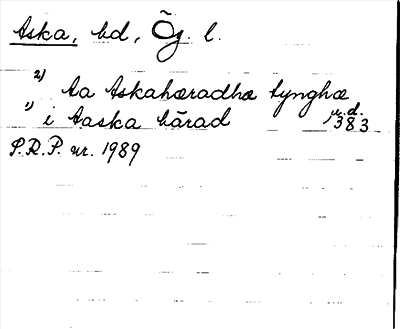 Aska, hd, Ög. l.
2) Aa Askahæradhæ tynghæ
1) i Aaska härad u.d. 1383
S.R.P. nr. 1989